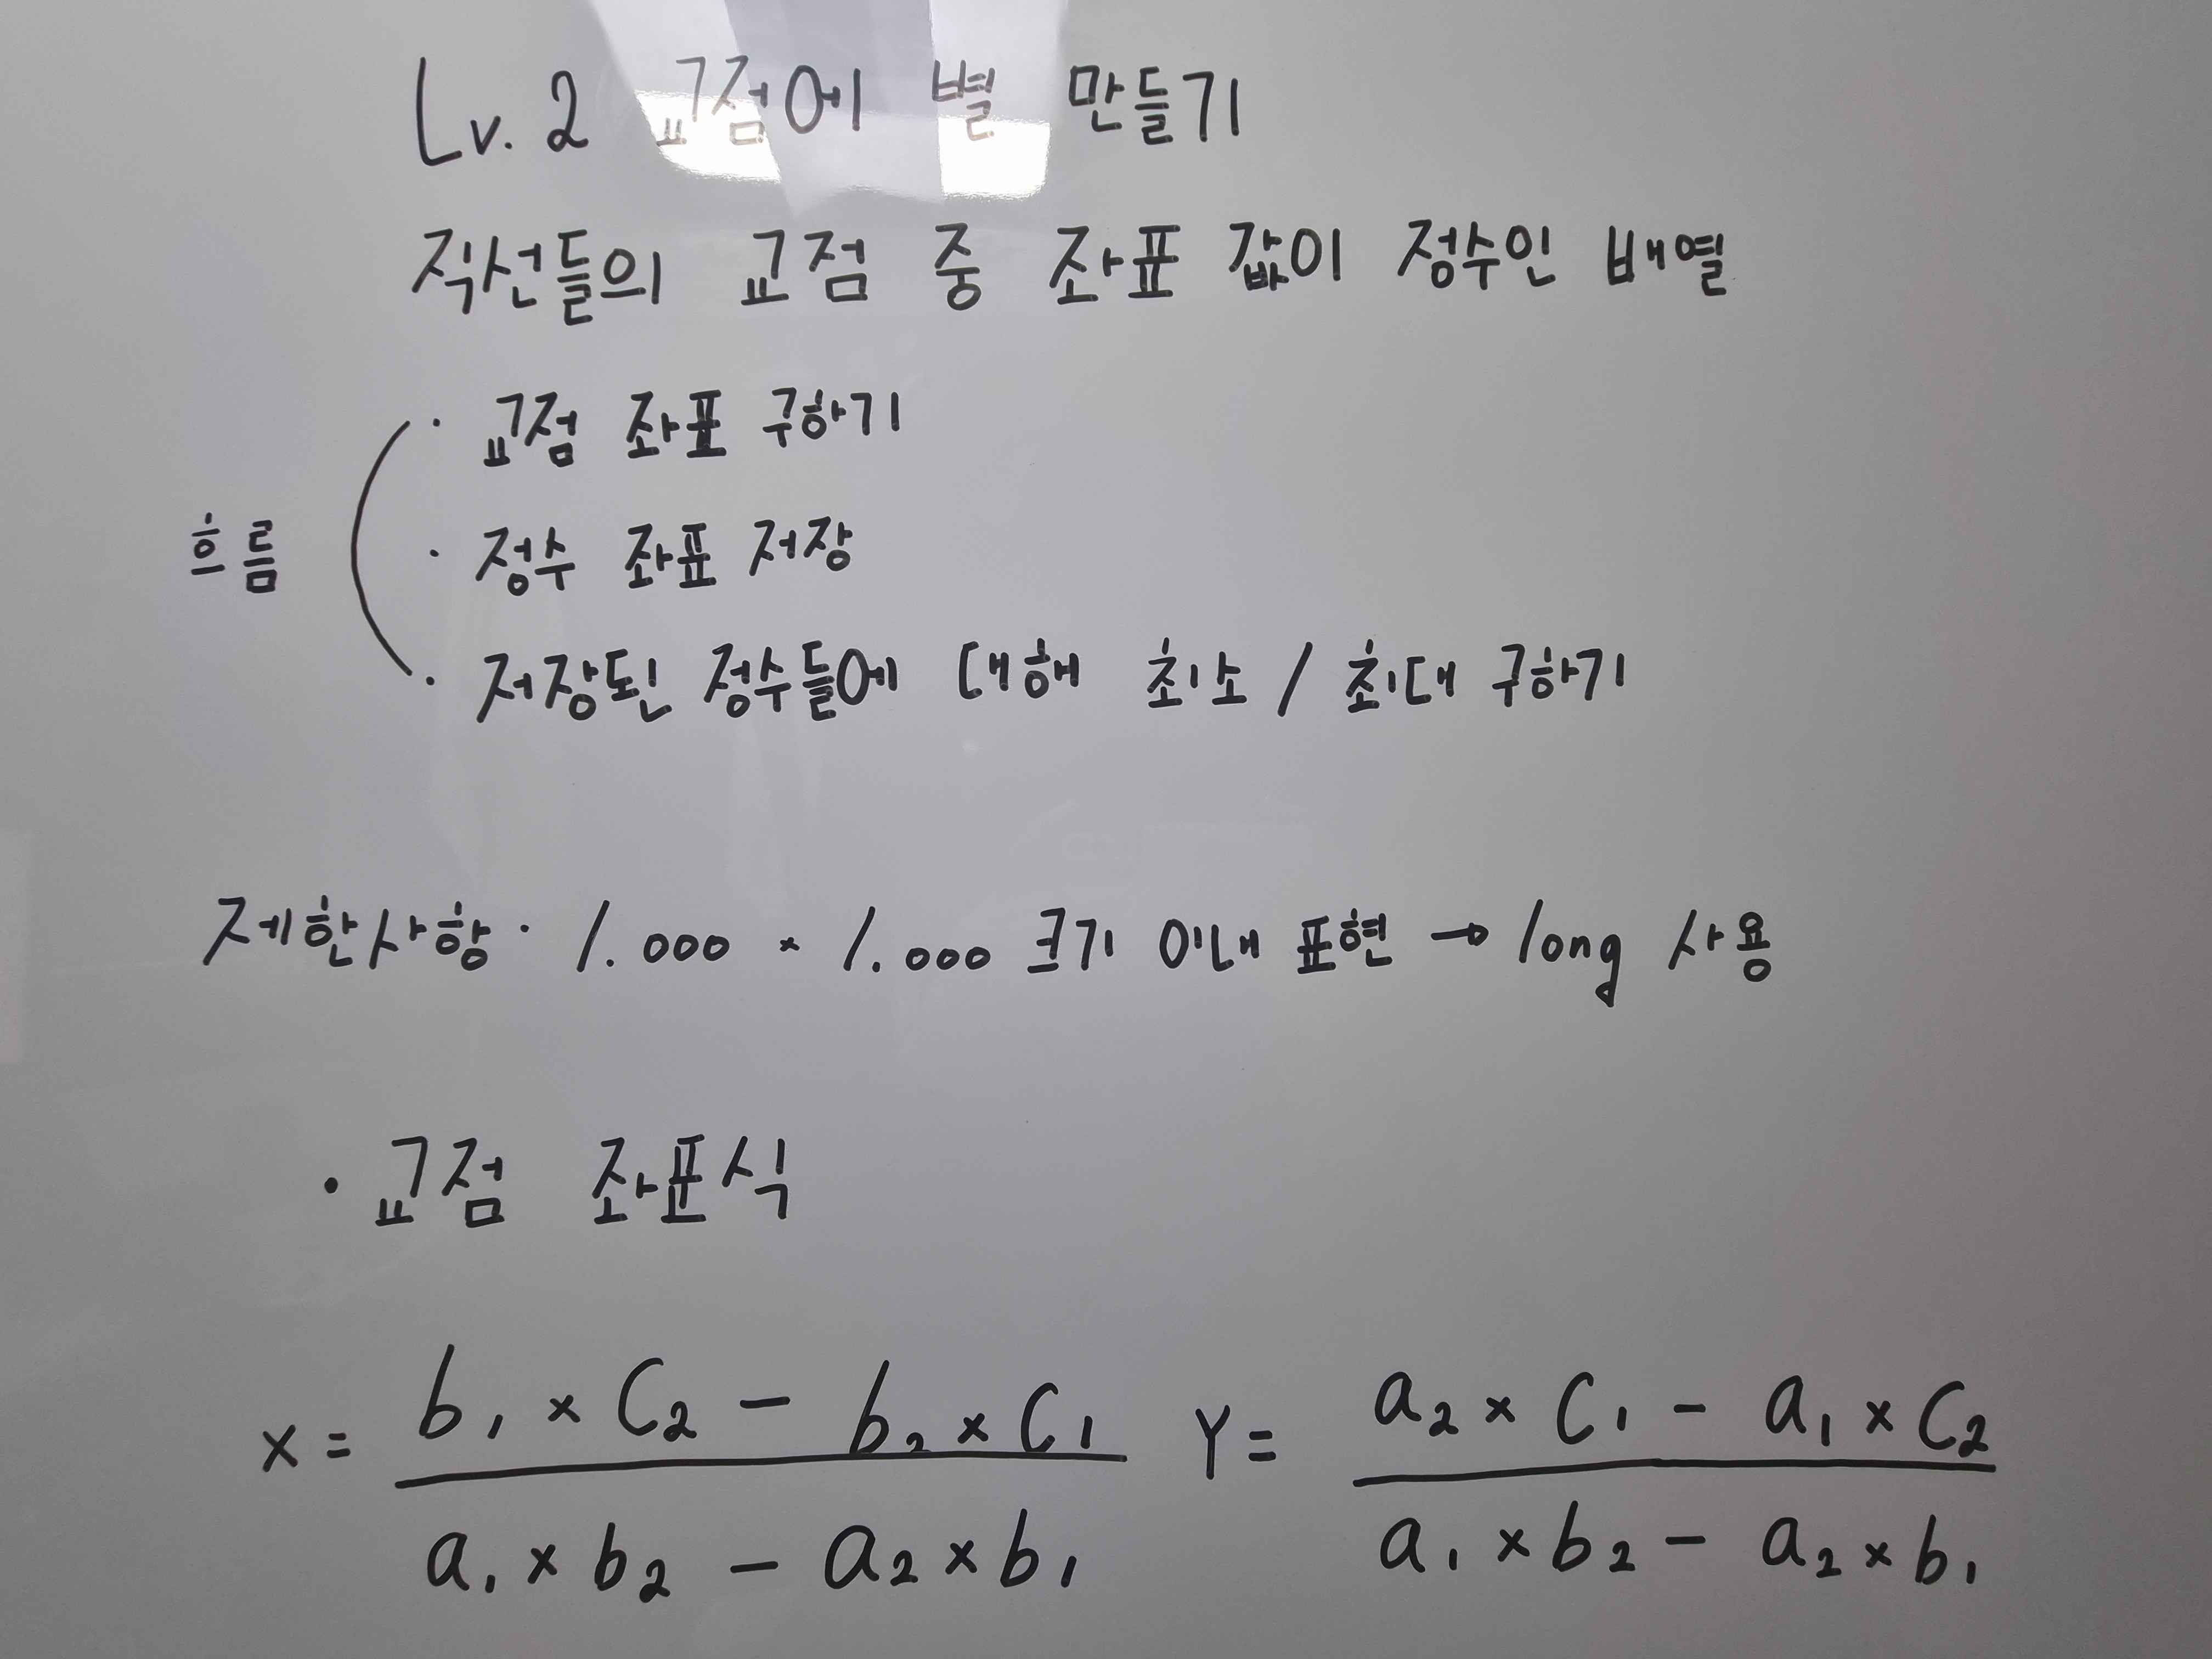 Lv. 2 교점에 별 만들기
직선들의 교점 중 좌표 값이 정수인 배열
· 교점 좌표 구하기
흐름
· 정수 좌표 저장
· 저장된 정수들에 대해 최소 / 최대 구하기
제한사항 · 1.000 × 1.000 크기 이내 표현 → long 사용
· 교점 좌표식
x = (b₁ × C₂ − b₂ × C₁) / (a₁ × b₂ − a₂ × b₁) Y = (a₂ × C₁ − a₁ × C₂) / (a₁ × b₂ − a₂ × b₁)